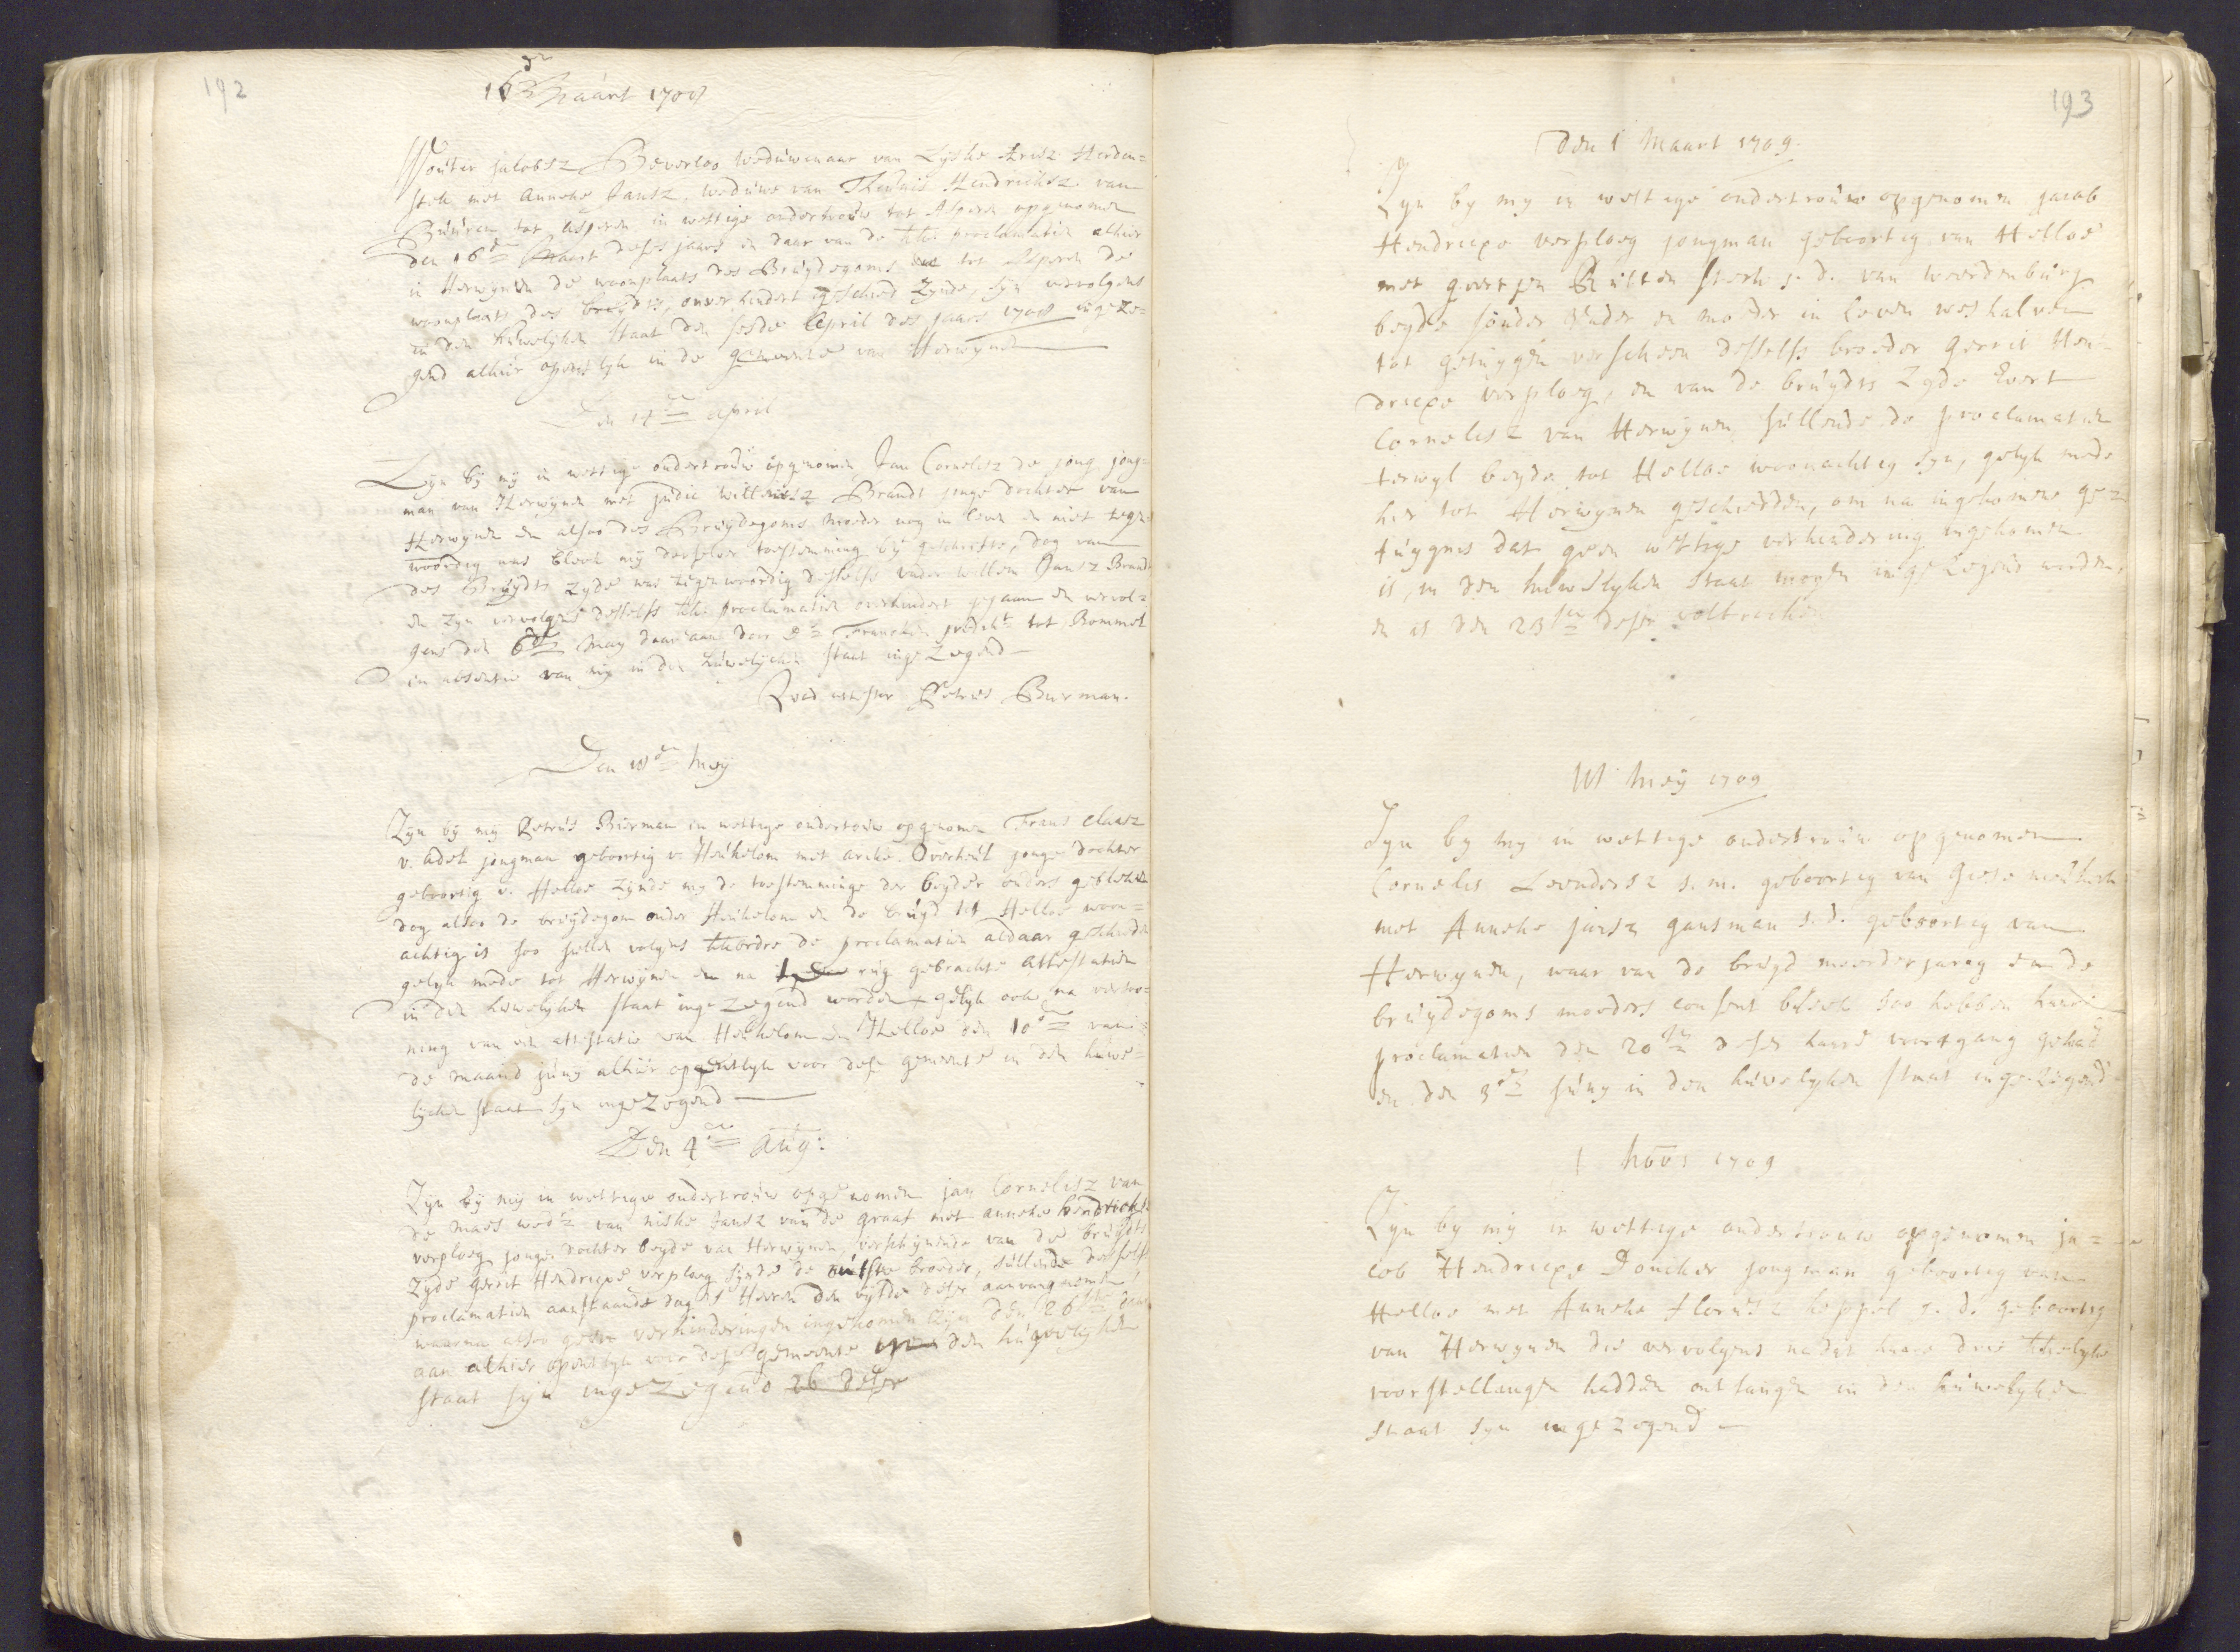 192
16 den Maart 1708
Wouter Jacobsz Beverloo weduwenaar van Lyske
met Anneke Jansz. weduwe van Hendricksz. van
Buuren tot Asperen in wettige ondertrouw tot Asperen opgenomen
den 16 den Maart deses jaars en daar van de proclamatien alhier
in Herwynen de woonplaats des Bruydegoms en tot Asperen de
woonplaats des bruydts, onverhindert geschiet zynde, syn vervolgens
in den huwelyken staat den sesde April des jaars 1708 ingeze=
gend alhier opentlyk in de gemeente van Herwynen
Den 14 den April
Zyn by my in wettige ondertrouw opgenomen Jan Cornelisz de jong jong=
man van Herwynen met Judic Willemsz Brandt jonge dochter van
Herwynen en alsoo des Bruydegoms moeder nog in leven en niet tegen=
woordig was bleek my derselver toestemming by geschrifte, dog van
des Bruydts zyde was tegenwoordig desselfs vader Willem Jansz Brandt
en zyn vervolgens desselfs proclamatien onverhindert gegaan en vervol=
gens den 6 den May daar aan door Ds Francken predikt tot Bommel
in absentie van my in den huwelycken staat ingezegend
Quod attestor Petrus Burman.
Den 18 den Mey
Zyn by my Petrus Burman in wettige ondertrouw opgenomen Frans Claasz
v. Adel jongman geboortig v. Heukelom met Arike Overheul jonge dochter
geboortig v. Hellоe zynde my de toestemminge der beyder ouders gebleken
dog alsoo de bruydegom onder Heukelom en de bruyd tot Helloe woon=
achtig is soo sullen volgens de proclamatien aldaar geschieden
gelyk mede tot Herwynen en na rug gebrachte attestatien
in den huwelyken staat ingezegend worden gelyk ook na vertoo=
ning van een attestatie van Heukelom en Helloe den 10 den van
de maand juny alhier opentlyk voor dese gemeente in den huwe=
lycken staat syn ingezegend
Den 4 den Aug:
Zyn by my in wettige ondertrouw opgenomen jan Cornelisz van
de Maes wedr van niske Jansz van de graaf met anneke hendricksz
verploeg jonge dochter beyde van Herwynen, verschynende van de bruydts
zyde Gerrit Hendricxe verploeg synde de outste broeder, sullende desselfs
proclamatien aanstaande dag des Heeren den vyfde deser aanvang nemen
waarna alsoo geen verhinderingen ingekomen zyn den 26 sten daar
aan alhier opentlyk voor dese gemeente in den huwelyken
staat syn ingezegend 26 deser
193
Den 1 Maart 1709.
Zyn by my in wettige ondertrouw opgenomen jacob
Hendricxe verploeg jongman geboortig van Helloe
met geertjen Rutten sterk j. d. van weerdenburg
beyde sonder vader en moeder in leven weshalven
tot getuygen verscheen desselfs broeder Gerrit Hen=
dricxe verploeg, en van de bruydts zyde Evert
Cornelisz van Herwynen, sullende de proclamatien
terwyl beyde tot Helloe woonachtig syn, gelyk mede
hier tot Herwynen geschieden, om na ingekomene ge=
tuygnis dat geen wettige verhindering ingekomen
is, in den huwelyken staat mogen ingezegend worden,
en is den 23 sten deser voltrocken
Mey 1709
Zyn by my in wettige ondertrouw opgenomen
Cornelis Leendersz j. m. geboortig van
met Anneke jansz gansman j. d. geboortig van
Herwynen, waar van de bruyd meerderjarig en de
bruydegoms moeders consent bleek soo hebben haare
proclamatien den 20 sten deser haare voortgang gehad
en den 3 den juny in den huwelyken staat ingezegend
1 1709
Zyn by my in wettige ondertrouw opgenomen ja=
cob Hendricxe Doncker jongman geboortig van
Helloe met Anneke Florusz keppel j. d. geboortig
van Herwynen die vervolgens nadat haare drie
voorstellingen hadden ontfangen in den huwelyken
staat syn ingezegend